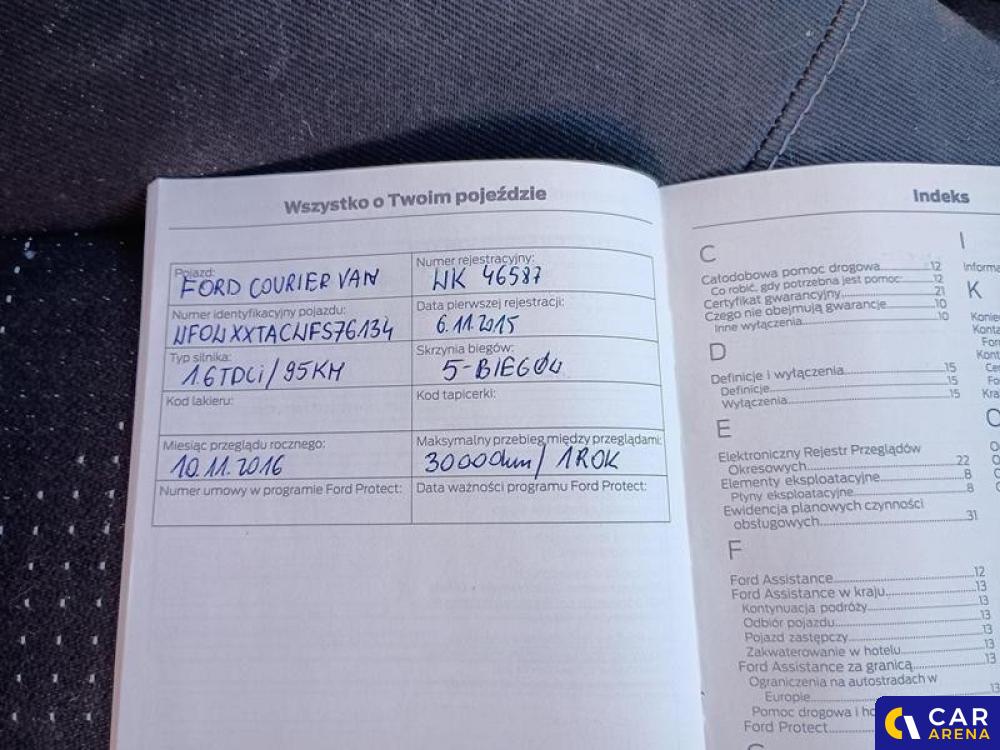 Wszystko o Twoim pojeździe
Pojazd:
FORD COURIER VAN
Numer rejestracyjny:
WK 46587
Numer identyfikacyjny pojazdu:
WFOWXXTACWFS76134
Data pierwszej rejestracji:
6.11.2015
Typ silnika:
1.6TDCi/95KM
Skrzynia biegów:
5-BIEGÓW
Kod lakieru:
Kod tapicerki:
Miesiąc przeglądu rocznego:
10.11.2016
Maksymalny przebieg między przeglądami:
30000km/ 1ROK
Numer umowy w programie Ford Protect:
Data ważności programu Ford Protect:
Indeks
C
Całodobowa pomoc drogowa 12
Co robić, gdy potrzebna jest pomoc: 12
Certyfikat gwarancyjny 21
Czego nie obejmują gwarancje 10
Inne wyłączenia 10
D
Definicje i wyłączenia 15
Definicje 15
Wyłączenia 15
E
Elektroniczny Rejestr Przeglądów
Okresowych 22
Elementy eksploatacyjne 8
Płyny eksploatacyjne 8
Ewidencja planowych czynności
obsługowych 31
F
Ford Assistance 12
Ford Assistance w kraju 13
Kontynuacja podróży 13
Odbiór pojazdu 13
Pojazd zastępczy 13
Zakwaterowanie w hotelu 13
Ford Assistance za granicą 13
Ograniczenia na autostradach w
Europie 13
Pomoc drogowa i
Ford Protect
I
K
CAR
ARENA